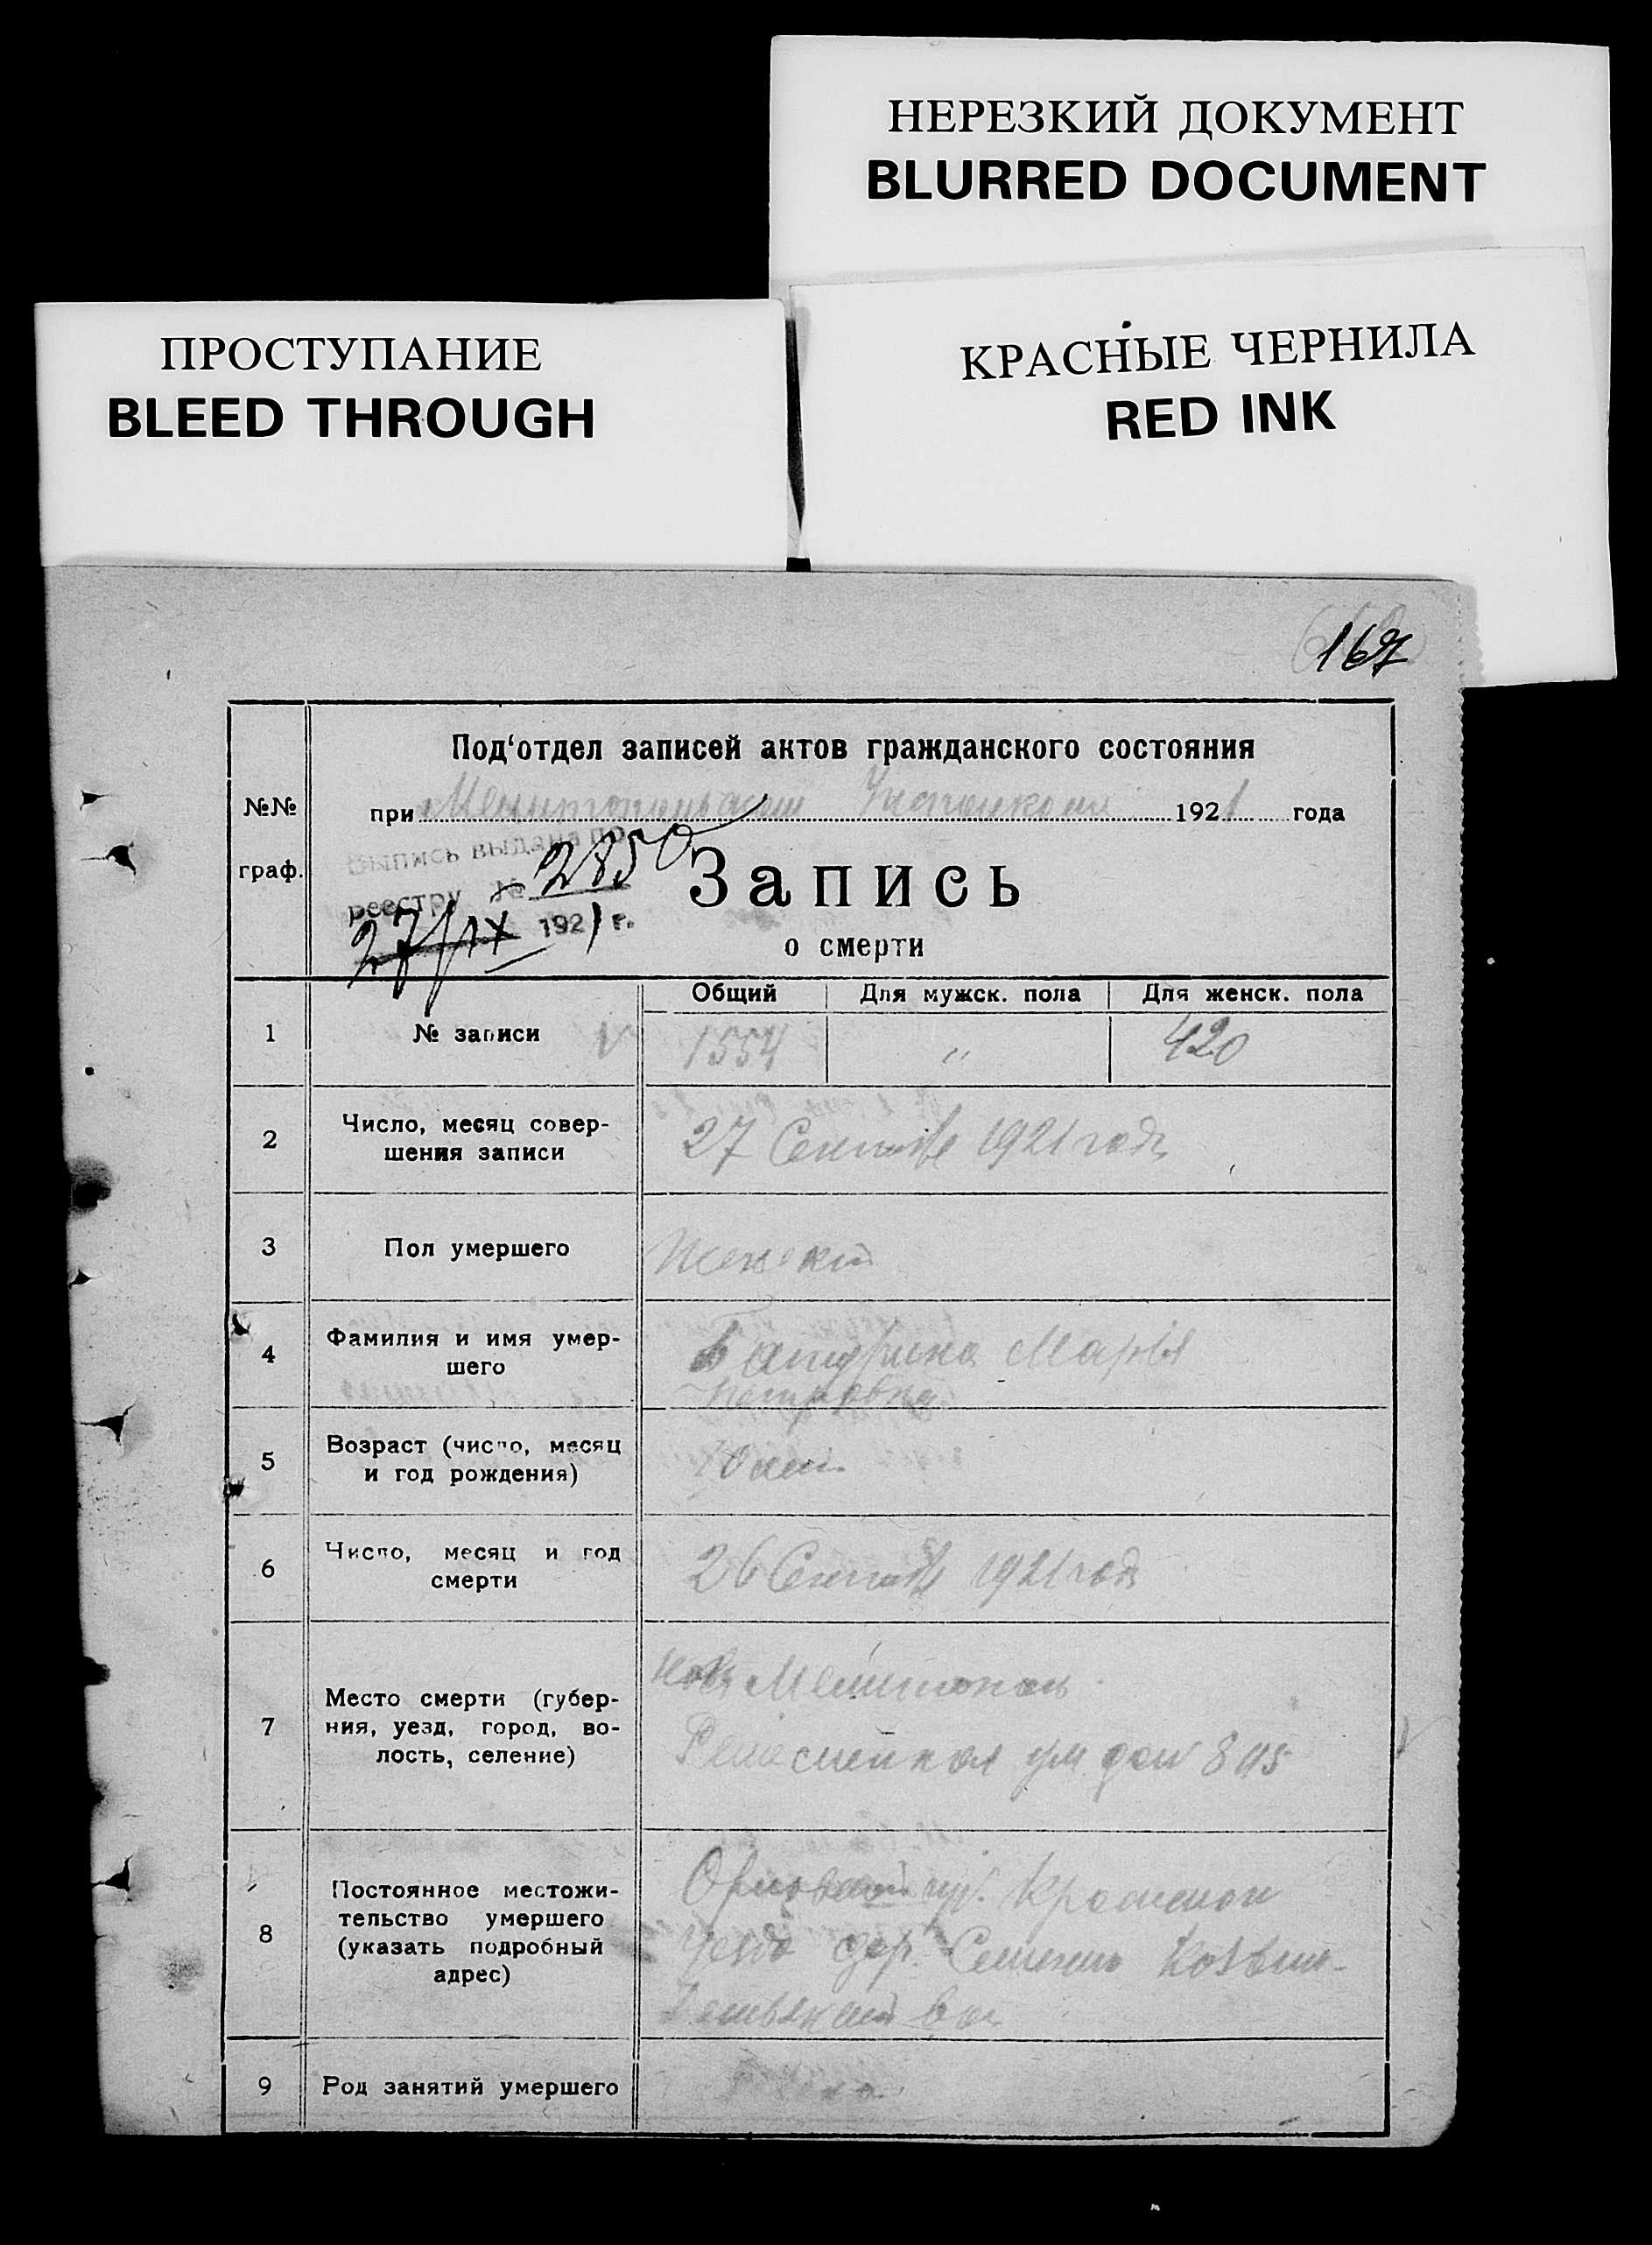 НЕРЕЗКИЙ ДОКУМЕНТ
BLURRED DOCUMENT
ПРОСТУПАНИЕ
BLEED THROUGH
КРАСНЫЕ ЧЕРНИЛА
RED INK
167
Под‘отдел записей актов гражданского состояния
№№
граф.
при Мелитопольском 1921 года
Выпись выдана по
реестру № 2850
27/IX 1921 г.
Запись
о смерти
Общий Для мужск. пола Для женск. пола
1 № записи 1554 " 420
2 Число, месяц совер-
шения записи
27 Сентяб 1921 года
3 Пол умершего Женский
4 Фамилия и имя умер-
шего
Батурина Мария
Петровна
5 Возраст (число, месяц
и год рождения)
6 Число, месяц и год
смерти
26 Сентяб 1921 года
7 Место смерти (губер-
ния, уезд, город, во-
лость, селение)
Мелитополь
ул дом
8 Постоянное местожи-
тельство умершего
(указать подробный
адрес)
Орловской губ.
Уезда дер.
вол
9 Род занятий умершего